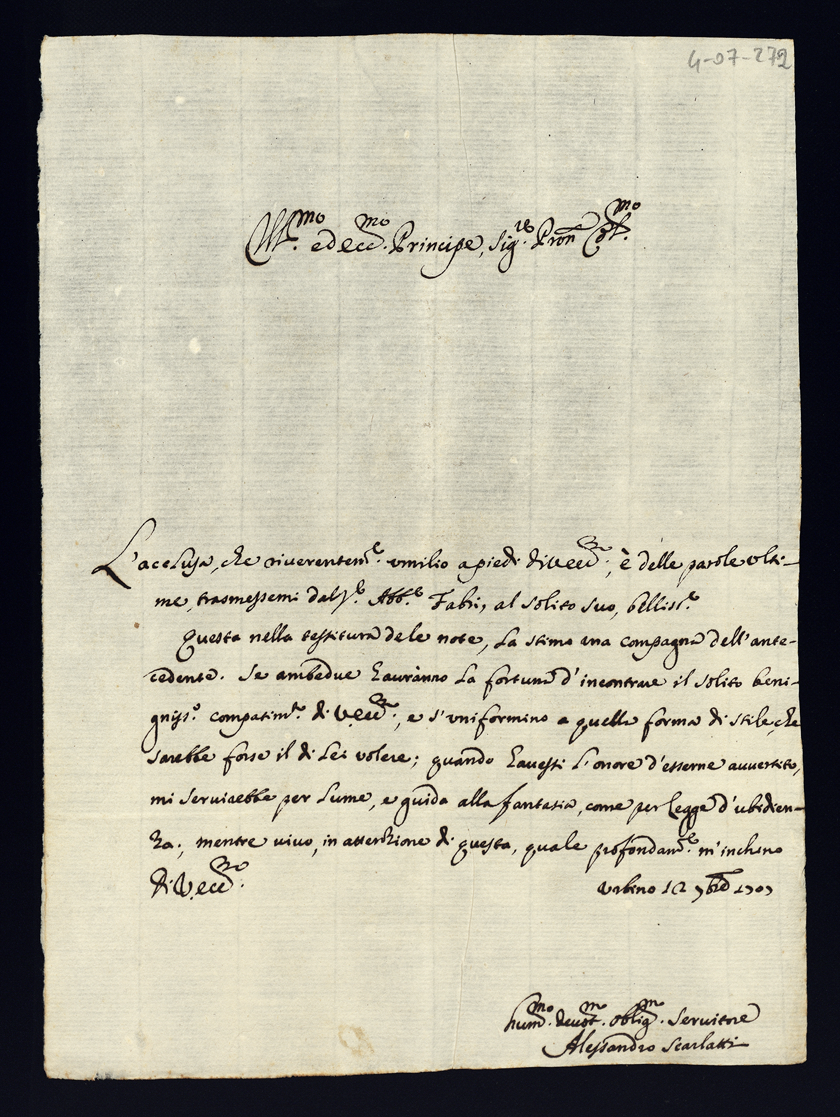 4-07-272
Ill.mo ed ecc.mo Principe, Sig.re Pron Col.mo
L'acclusa, che riverentem.e umilio a piedi di V. ecc.za, è delle parole ulti-
me, trasmessemi dal S.r Abb.e Fabri, al solito suo, belliss.e
Questa nella testitura dele note, la stimo una compagna dell'ante-
cedente. Se ambedue hauranno la fortuna d'incontrare il solito beni-
gniss.o compatim.to di V. ecc.za, e s'uniformino a quella forma di stile, che
sarebbe forse il di Lei volere; quando havessi l'onore d'esserne avvertito,
mi servirebbe per lume, e guida alla fantasia, come per legge d'ubidien-
za; mentre vivo, in attenzione di questa, quale profondam.e m'inchino
Di V. ecc.za
Urbino 12 9bre 1707
hum.mo devot.mo oblig.mo Servitore
Alessandro Scarlatti